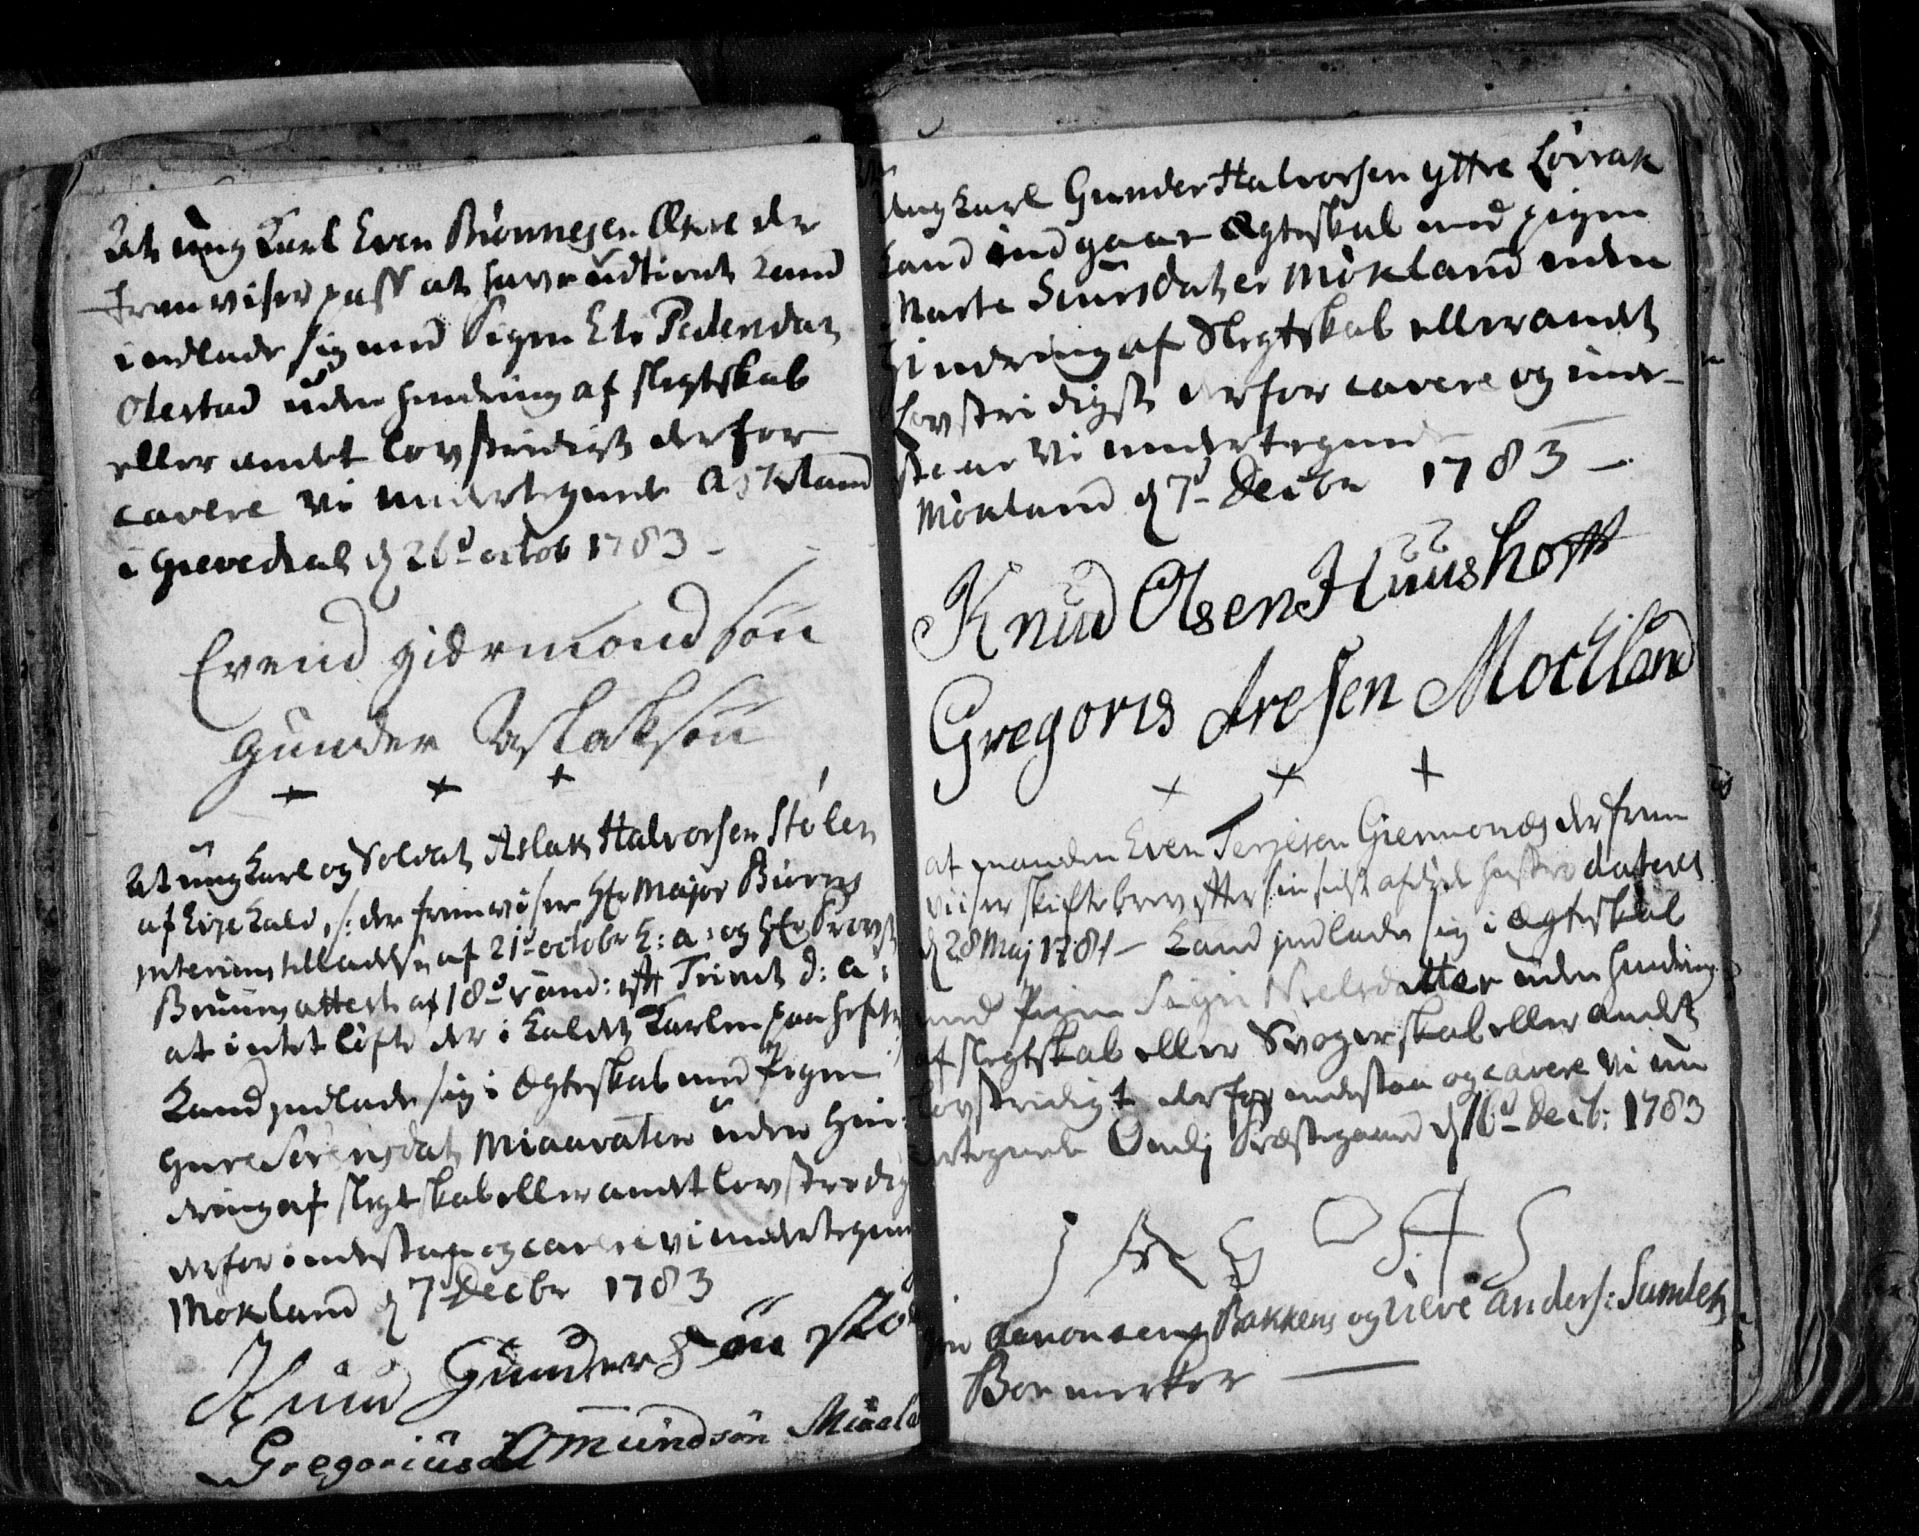 At ung Karl Even Brønnesen der
fremviser pass at have udtient kand
indlade sig med Pigen Els Pedersdat
Olestad uden hindring af slegtskab
eller andet lovstridigt derfor
cavere vi undertegnede Askeland
i Grevedral d 26d octob 1783 -
Evend giærmond søn
gunder Aslaksøn
+ + +
At ung Karl og Soldat Aslak Halvorsen Stølen
af Evje Kald, /: der fremviser Hr Major Biørns
interims tilladelse af 21d octobr h: a: og Hr Provst
Bruuns attest af 18d Sønd: eft Trinit d: a:
at intet løfte der i Kaldet Karlen paahefter
Kand indlade sig i Ægteskab med Pigen
Gure Sørensdat Miaavaten uden Hin-
dring af slegtskab eller andet lovstridig
derfor indestaae og cavere vi undertegnede
Mokland d 7d Decbr 1783
Knud Gundersøn Stø
Gregorius Omundsøn
Ung Karl Gunder Halvorsen yttre Løvrak
Kand indgaae Ægteskab med pigen
Marte Siursdatter Mokland uden
Hindring af Slegtskab eller andet
Lovstridigt derfor cavere og inde-
staae vi undertegnede
Mokland d 7d Decbr 1783 -
Knud Olsen Huushott
Gregoris Aresen Mockland
+ + +
at manden Even Terjesen Giermonæs der frem
viiser skiftebrev etter sin sidst afdøde hustro dateret
d 28 Maj 1781 - Kand indlade sig i Ægteskab
med Pigen Sigri Nielsdatter uden hindring
af slegtskab eller Svogerskab eller andet
Lovstridigt derfor indestaa og cavere vi un
dertegnede Omli Præstegaard d 16d Decb: 1783
Aanonsen Bakken og Anders:
Bomerker